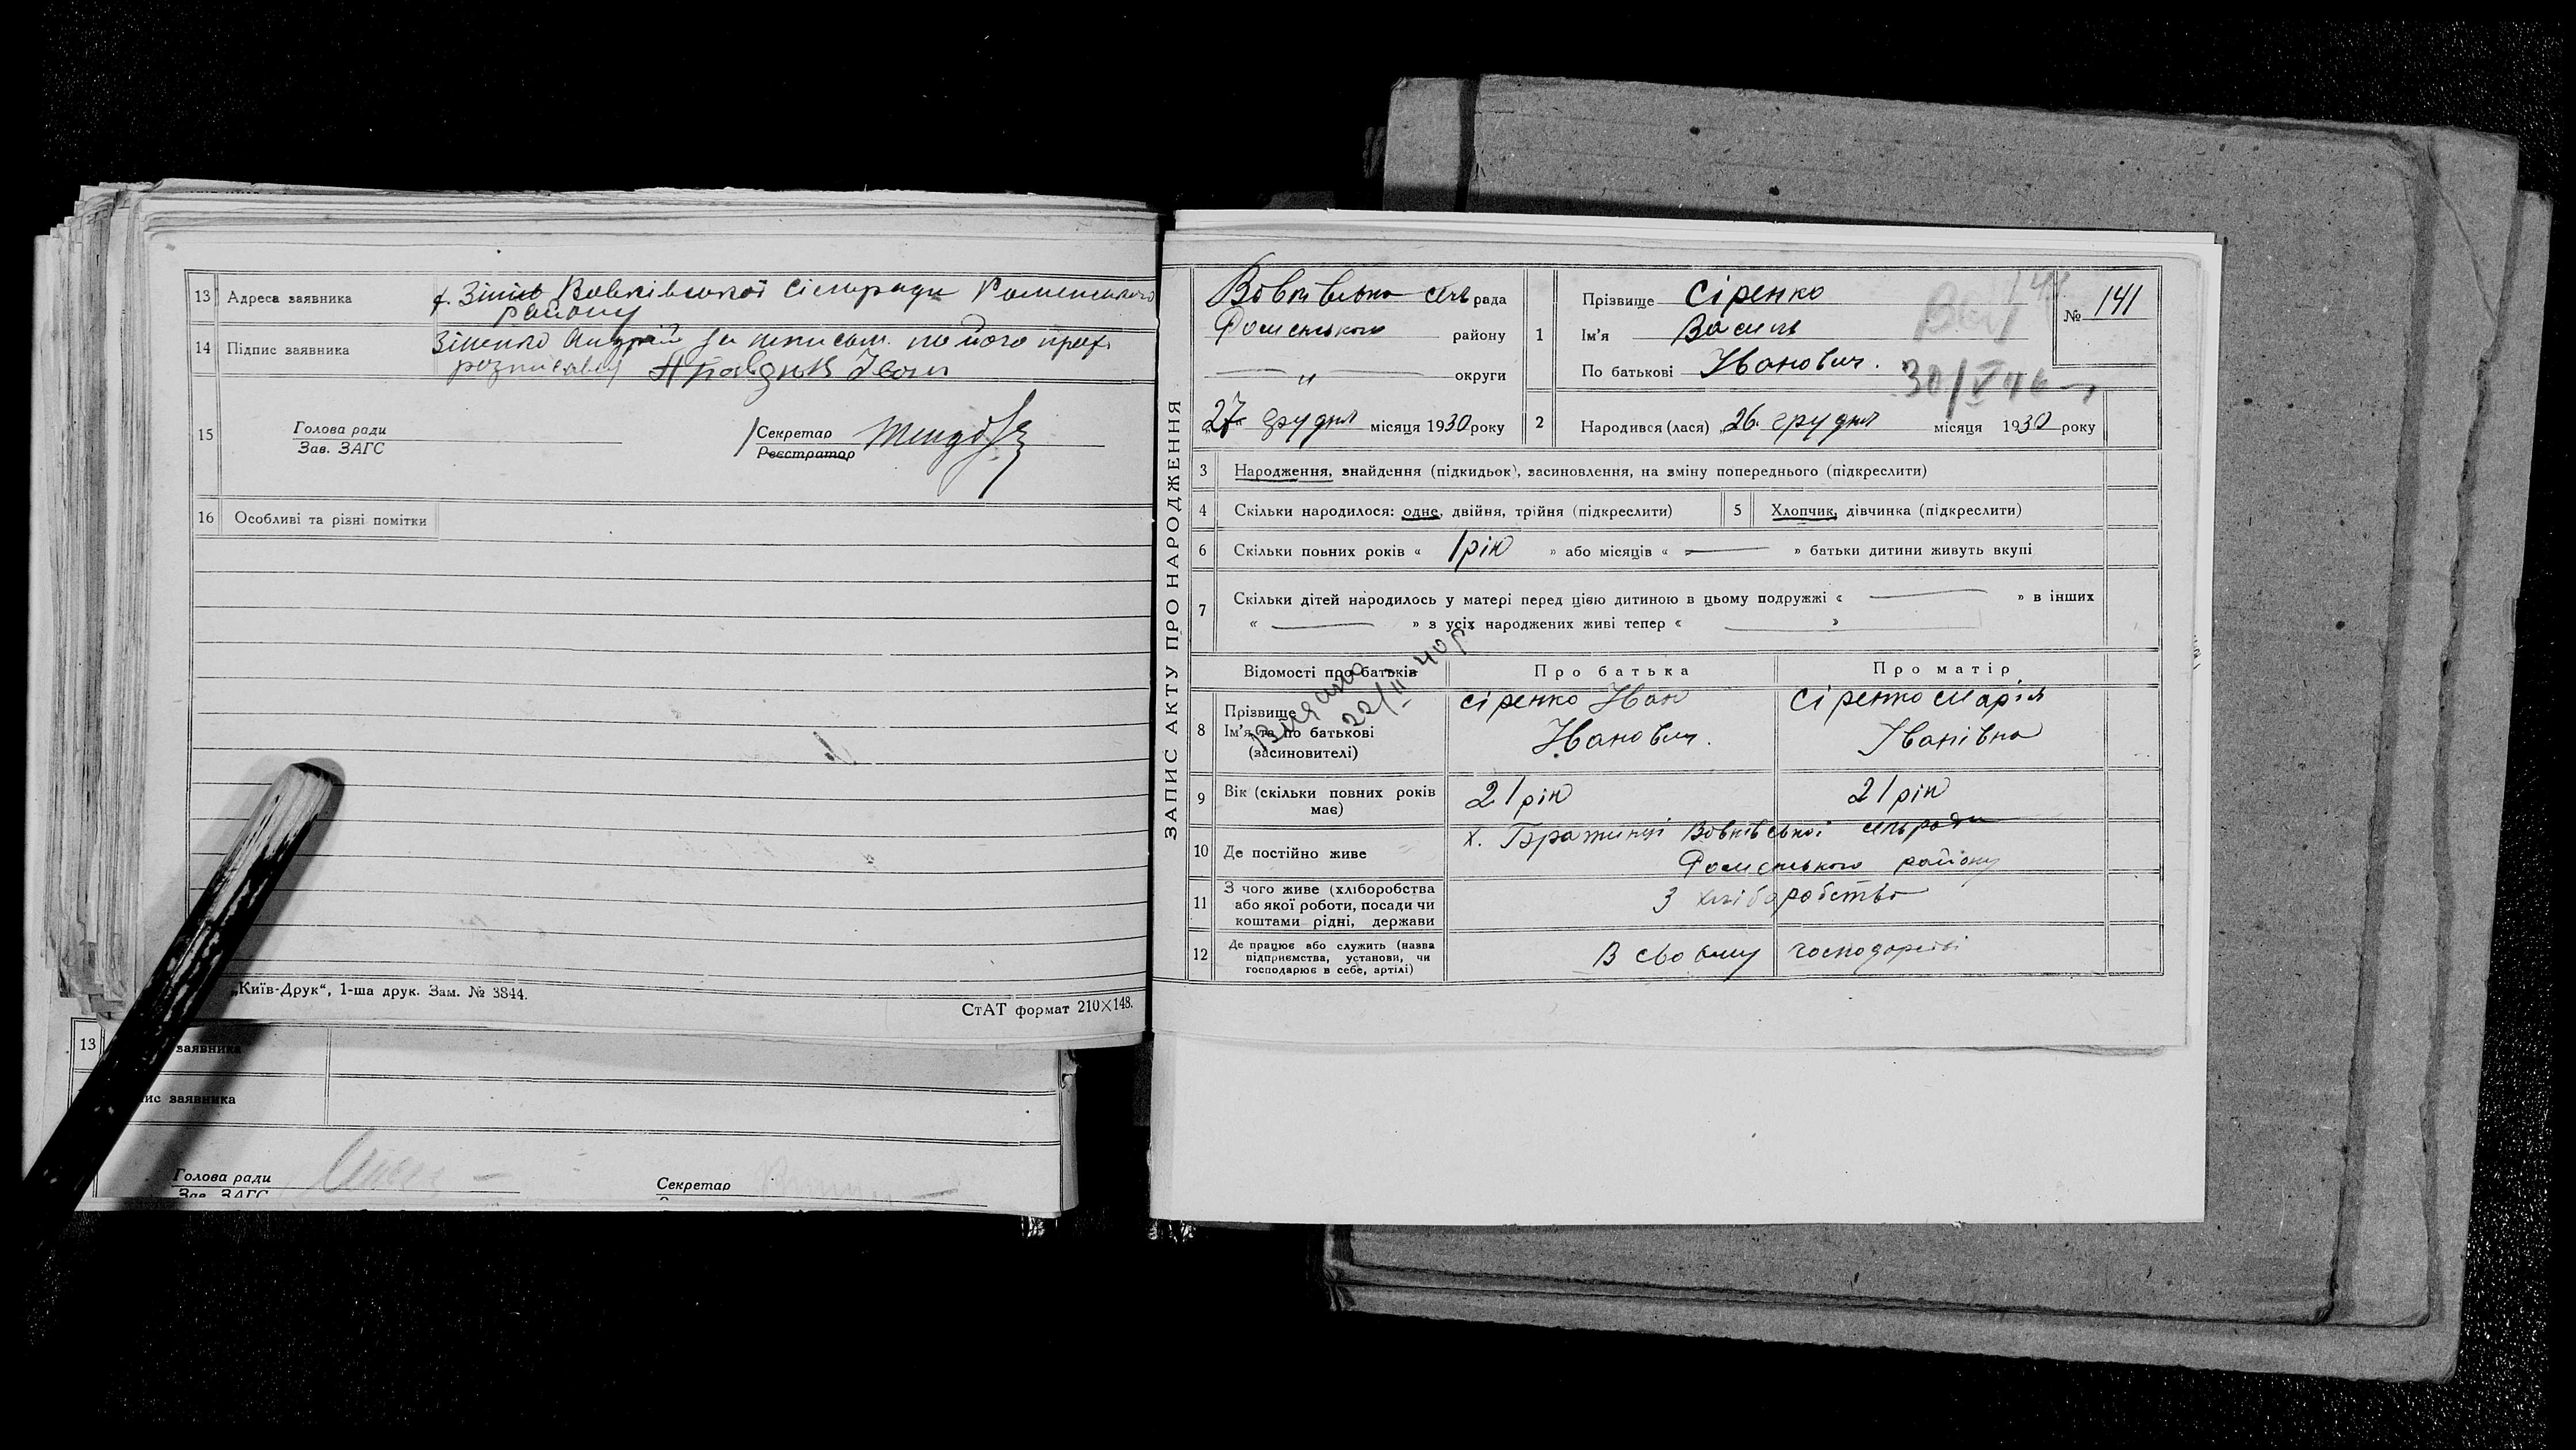 13 Адреса заявника х. Зінів Вовківської сільради Роменського
району
14 Підпис заявника Зіненко Андрій за неписьм. по його прох.
розписався Правдюк Іван
15 Голова ради
Зав. ЗАГС
Секретар
Реєстратор
16 Особливі та різні помітки
„Київ-Друк“, 1-ша друк. Зам. № 3844.
СтАТ формат 210×148.
13 заявника
заявника
Голова ради
Зав. ЗАГС
Секретар
ЗАПИС АКТУ ПРО НАРОДЖЕННЯ
Вовківська сільрада
Роменського району
— „ — округи
„27“ грудня місяця 1930 року
1 Прізвище Сіренко
Ім'я Василь
По батькові Іванович.
№ 141
30/V
2 Народився (лася) „26. грудня місяця 1930 року
3 Народження, знайдення (підкидьок), засиновлення, на зміну попереднього (підкреслити)
4 Скільки народилося: одне, двійня, трійня (підкреслити)
5 Хлопчик, дівчинка (підкреслити)
6 Скільки повних років « 1 рік » або місяців « — » батьки дитини живуть вкупі
7 Скільки дітей народилось у матері перед цією дитиною в цьому подружжі « — » в інших
« — » з усіх народжених живі тепер « — »
Відомості про батьків
Про батька
Про матір
22/II 40р
8 Прізвище
Ім'я та по батькові
(засиновителі)
Сіренко Іван
Іванович.
Сіренко Марія
Іванівна
9 Вік (скільки повних років
має)
21 рік
21 рік
10 Де постійно живе
х. Бражинці Вовківської сільради
Роменського району
11 З чого живе (хліборобства
або якої роботи, посади чи
коштами рідні, держави
З хліборобства
12 Де працює або служить (назва
підприємства, установи, чи
господарює в себе, артілі)
В своєму господарстві